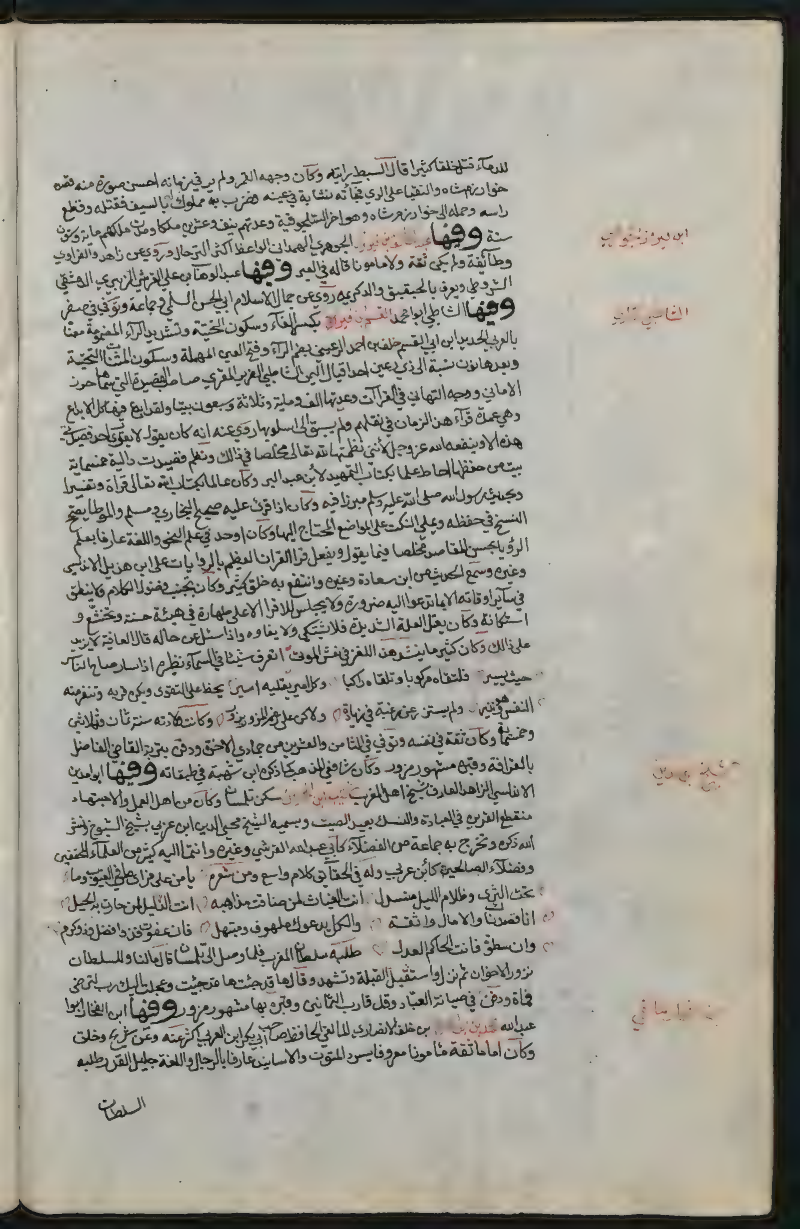 للدماء قتل خلقا كثيرا قال السبط رايته وكان وجهه القمر ولم ير في زمانه احسن صورة منه قصده
خوارزم شاه والتقيا على الري فجاته نشابة في عينه وضرب به مملوك بالسيف فقتله وقطع
راسه وحمله الى خوارزم شاه وهو اخر السلجوقية وعدتهم نيف وعشرين ملكا ومدة ملكهم ماية وستون
سنة وفيها الجوهري الهمداني الواعظ اكثر الترحال وروى عن زاهر والفراوي
وطائفة ولم يكن ثقة ولا مامونا قاله في العبر وفيها عبد الوهاب بن علي القرشي الزبيري الدمشقي
الشروطي ويعرف بالحبقبق والد كريمة روى عن جمال الاسلام ابي الحسن السلمي وجماعة وتوفي في صفر
وفيها الشاطبي ابو محمد القسم بن فيره بكسر الفاء وسكون التحتية وتشديد الراء المضمومة معناه
بالعربي الحديد ابن ابي القسم خلف بن احمد الرعيني بضم الراء وفتح العين المهملة وسكون المثناة التحتية
وبعدها نون نسبة الى ذي رعين احد اقيال اليمن الشاطبي الضرير المقري صاحب القصيدة التي سماها حرز
الاماني ووجه التهاني في القراآت وعدتها الف وماية وثلاثة وسبعون بيتا ولقد ابدع فيها كل الابداع
وهي عمدة قراء هذا الزمان في نقلهم ولم يسبق الى اسلوبها روي عنه انه كان يقول لا يقرى احد قصيدتي
هذه الا وينفعه الله عز وجل لأنني نظمتها لله تعالى مخلصا في ذالك ونظم قصيدة دالية خمسماية
بيت من حفظها احاط علما بكتاب التمهيد لابن عبد البر وكان عالما بكتاب الله تعالى قراة وتفسيرا
وبحديث رسول الله صلى الله عليه وسلم مبرزا فيه وكان اذا قرئ عليه صحيح البخاري ومسلم والموطا يصحح
النسخ في حفظه ويملي النكت على المواضع المحتاج اليها وكان اوحد في علم النحو واللغة عارفا بعلم
الرؤيا حسن المقاصد مخلصا فيما يقول ويفعل قرا القران العظيم بالروايات على ابن هذيل الاندلسي
وغيره وسمع الحديث من ابن سعادة وغيره وانتفع به خلق كثير وكان يجتنب فضول الكلام ولا ينطق
في ساير اوقاته الا بما تدعوا اليه ضرورة ولا يجلس للاقرا الا على طهارة في هيئة حسنة وتخشع و
استكانة وكان يعتل العلة الشديدة فلا يشتكي ولا يتاوه واذا سئل عن حاله قال العافية لا يزيد
على ذالك وكان كثيرا ما ينشد هذا اللغز في نعش الموت اتعرف شيئا في السماء نظيره اذا سار صاح الناس
حيث يسير فتلقاه مركوبا وتلقاه راكبا وكل امير يعتليه اسير يحض على التقوى ويكره قربه وتنفر منه
النفس وهو نذير ولم يستزر عن رغبة في زيارة ولاكن على رغم المزور يزور وكانت ولادته سنة ثمان وثلاثين
وخمسماية وكان ثقة في نفسه وتوفي في الثامن والعشرين من جمادي الاخرة ودفن بتربة القاضي الفاضل
بالقرافة وقبره مشهور مزور وكان شافعي المذهب كما ذكره ابن شهبة في طبقاته وفيها ابو مدين
الاندلسي الزاهد العارف شيخ اهل المغرب شعيب ابن الحسين سكن تلمسان وكان من اهل العمل والاجتهاد
منقطع القرين في العبادة والنسك بعيد الصيت ويسميه الشيخ محيى الدين ابن عربي بشيخ الشيوخ نشر
الله ذكره وتخرج به جماعة من الفضلاء كابي عبد الله القرشي وغيره وانتما اليه كثير من العلماء المحققين
وفضلاء الصالحين كابن عربي وله في الحقايق كلام واسع ومن شعره يا من علا فراى ما في الغيوب وما
تحت الثرى وظلام الليل منسدل انت الغياث لمن ضاقت مذاهبه انت الدليل لمن حارت به الحيل
انا قصدناك والامال واثقة والكل يدعوك ملهوف ومبتهل فان عفوت فذو فضل وذو كرم
وان سطوت فانت الحاكم العدل طلبه سلطان المغرب فلما وصل الى تلمسان قال مالنا وللسلطان
نزور الاخوان ثم نزل واستقبل القبلة وتشهد وقال ها قد جئت ها قد جئت وعجلت اليك رب لترضى
فماة ودفن في جبانة العباد وقد قارب الثمانين وقبره بها مشهور مزور وفيها ابن الفخار ابوا
عبد الله محمد بن ابراهيم بن خلف الانصاري المالقي الحافظ صاحب ابي بكر ابن العربي اكثر عنه وعن شريح وخلق
وكان اماما ثقة مامونا معروفا يسرد المتون والاسانيد عارفا بالرجال واللغة جليل القدر طلبه
السلطان
الشاطبي